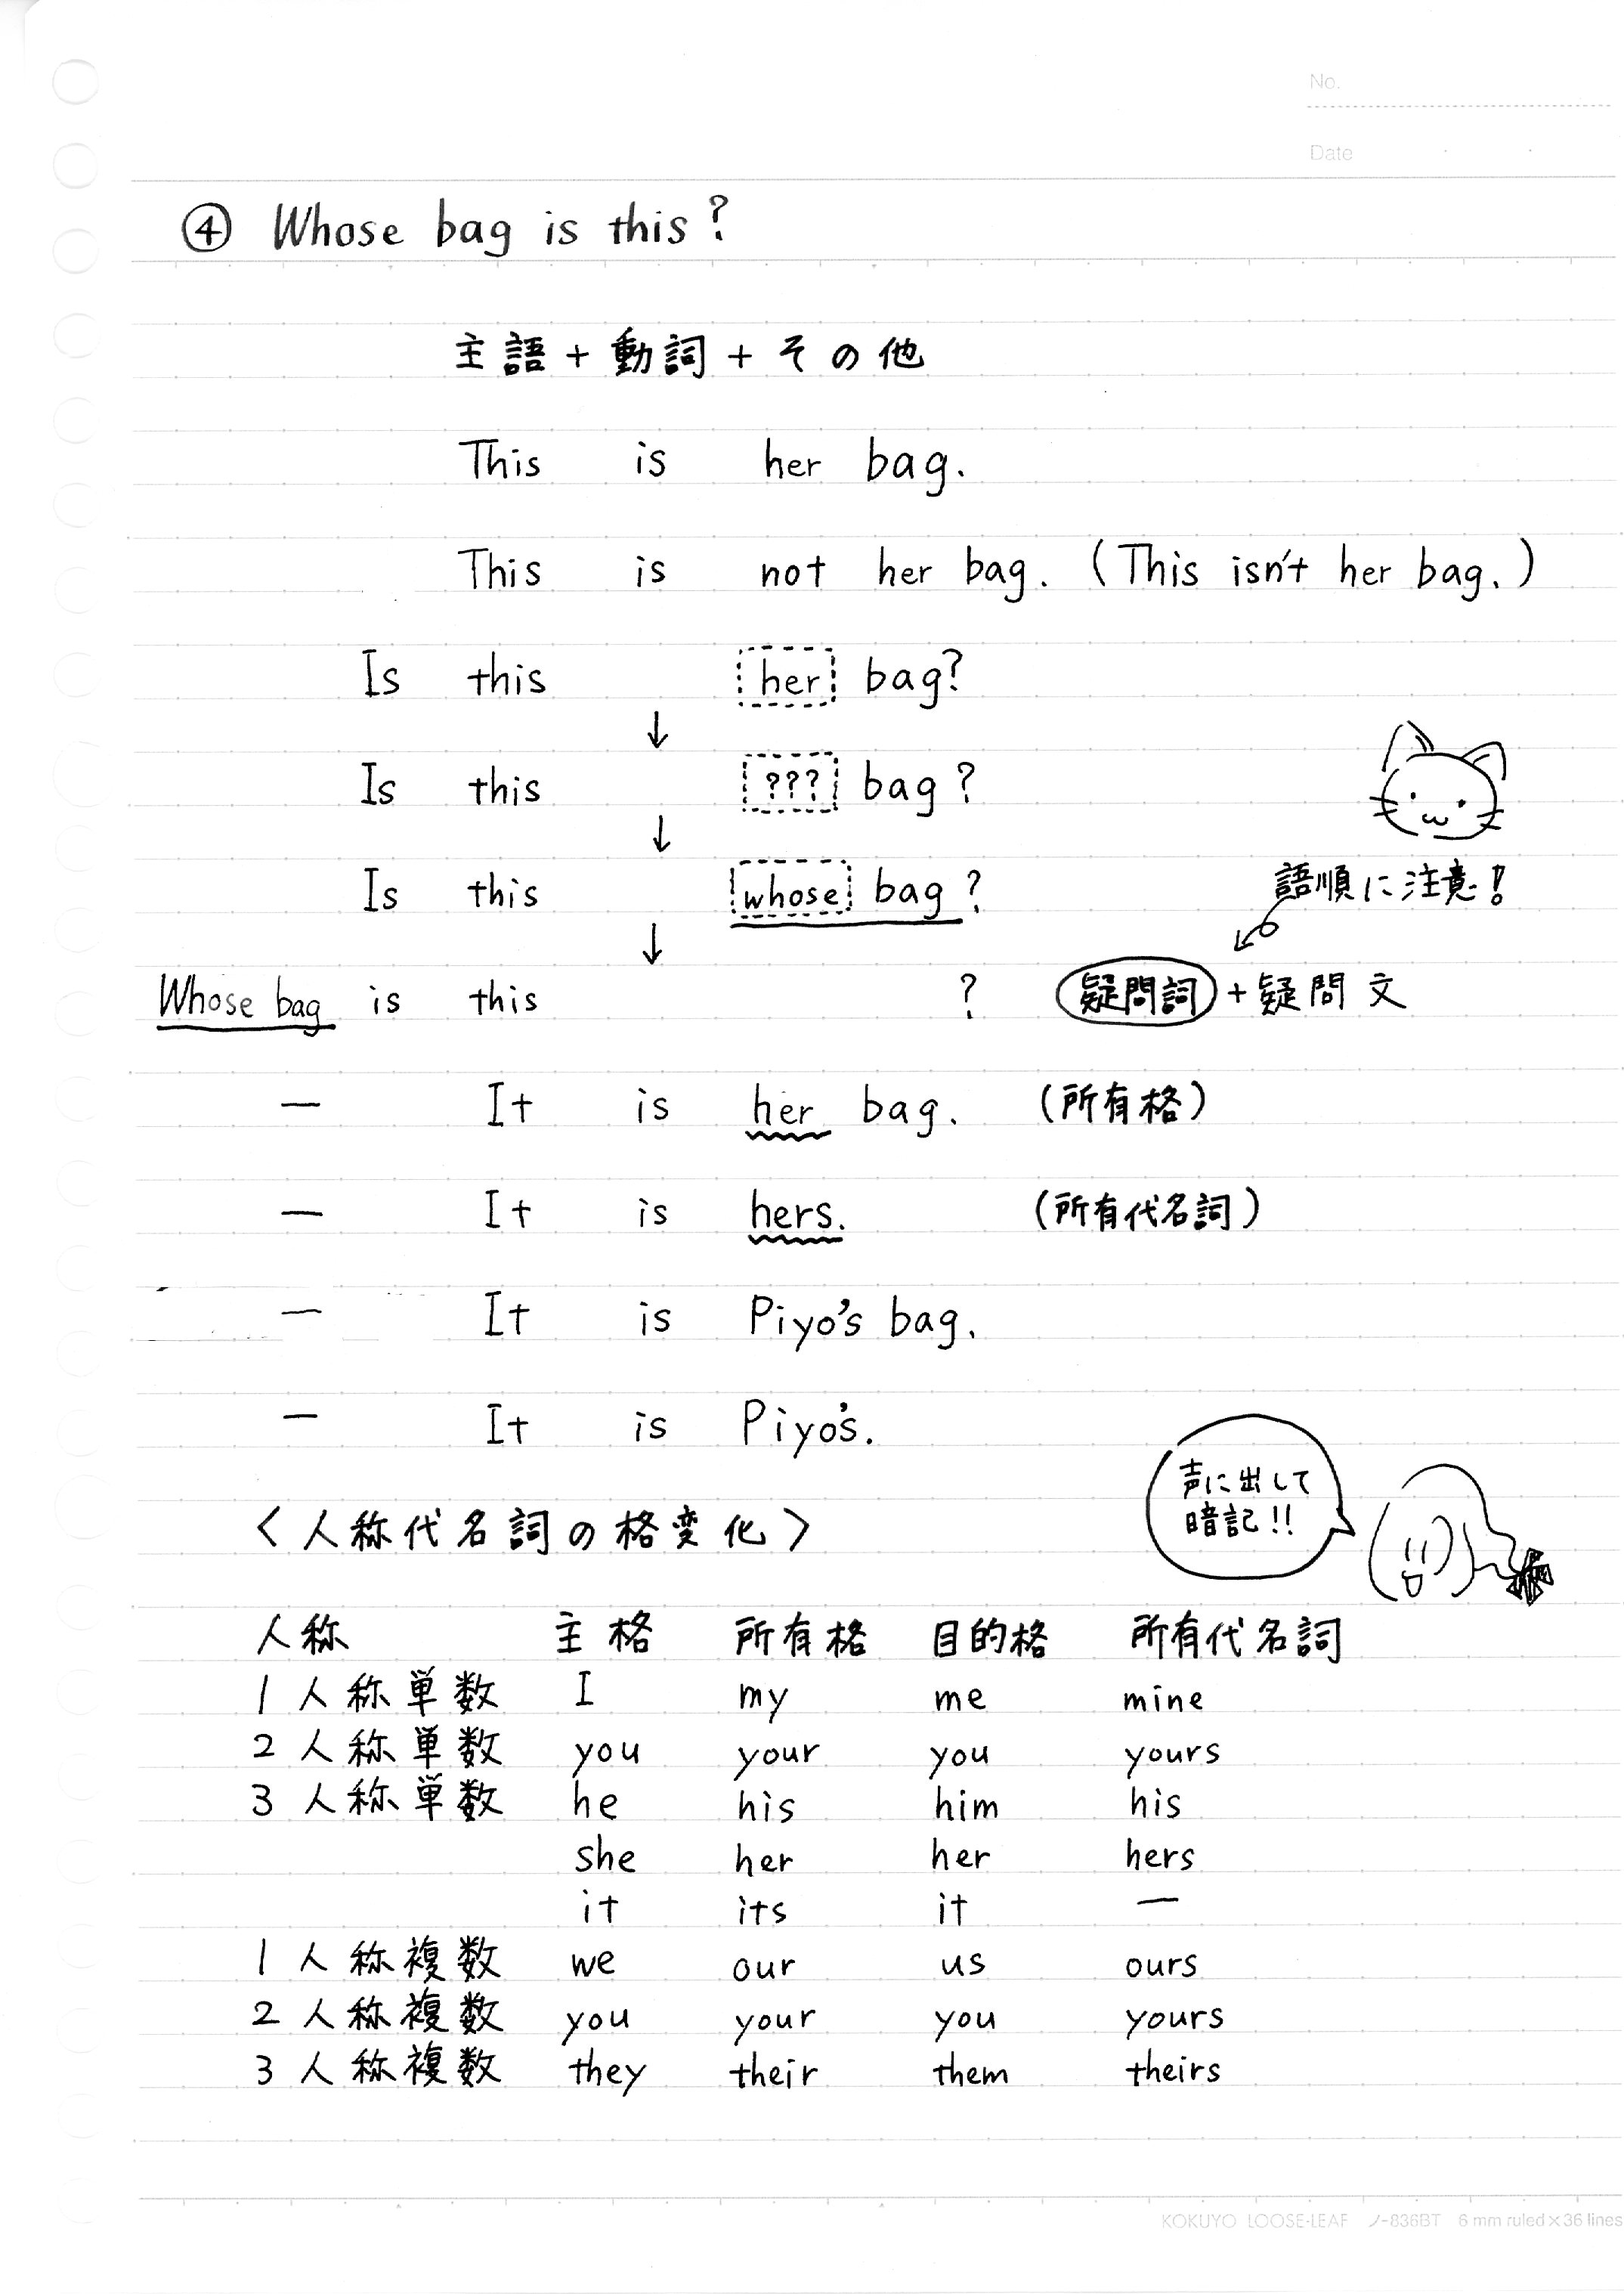 No.
Date
④ Whose bag is this?
主語+動詞+その他
This is her bag.
This is not her bag. (This isn't her bag.)
Is this her bag?
↓
Is this ??? bag?
↓
Is this whose bag?
語順に注意!
↓
Whose bag is this ? 疑問詞+疑問文
— It is her bag. (所有格)
— It is hers. (所有代名詞)
— It is Piyo's bag.
— It is Piyo's.
声に出して
暗記!!
〈人称代名詞の格変化〉
人称 主格 所有格 目的格 所有代名詞
1人称単数 I my me mine
2人称単数 you your you yours
3人称単数 he his him his
she her her hers
it its it —
1人称複数 we our us ours
2人称複数 you your you yours
3人称複数 they their them theirs
KOKUYO LOOSE-LEAF ノ-836BT 6 mm ruled×36 lines